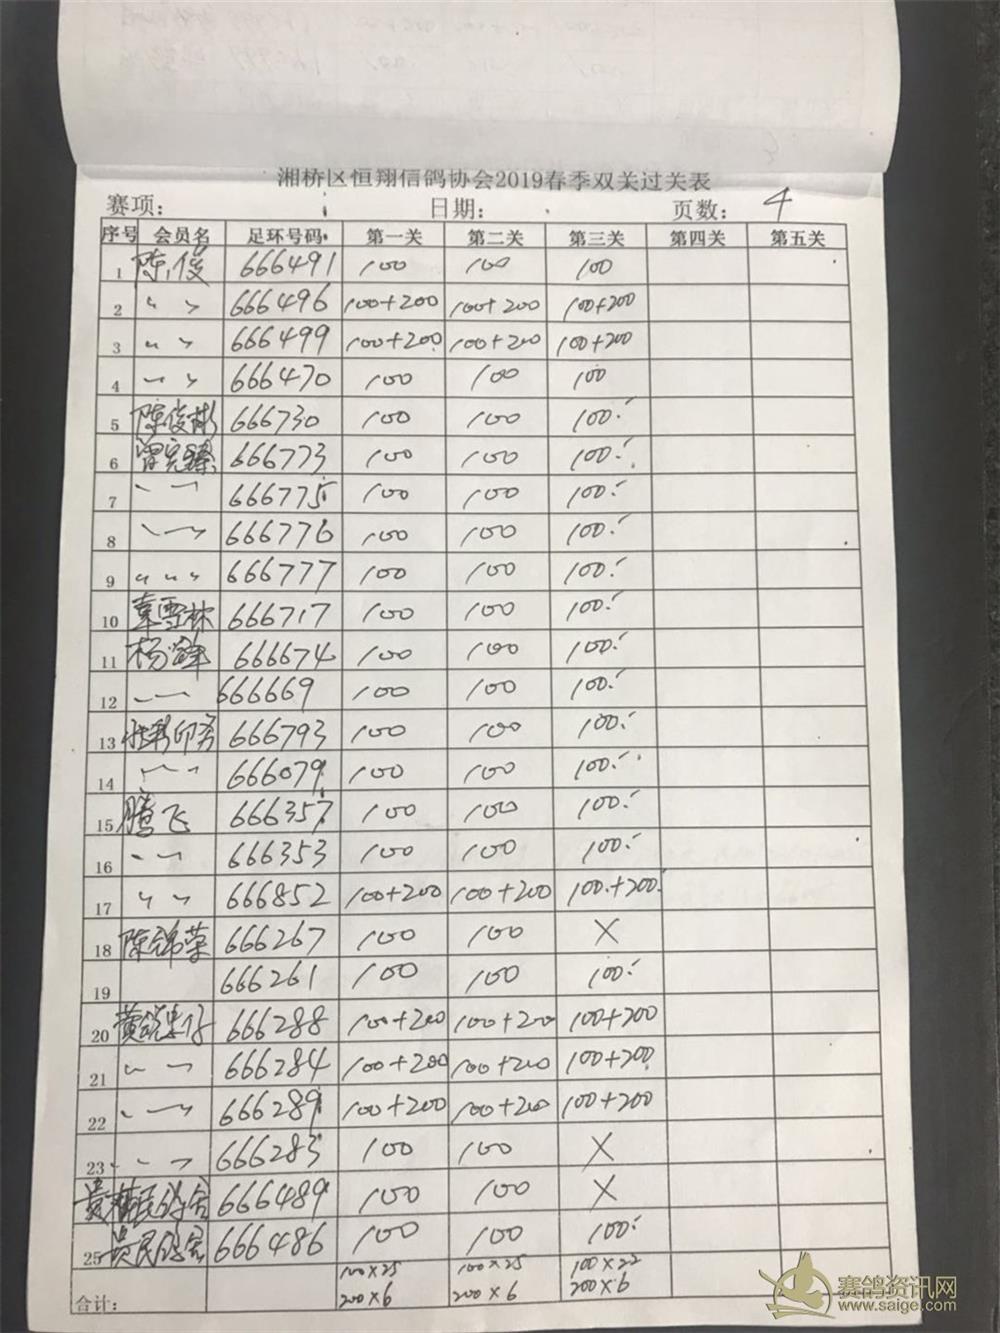 湘桥区恒翔信鸽协会2019春季双关过关表
赛项： 日期： 页数： 4
序号 会员名 足环号码 第一关 第二关 第三关 第四关 第五关
1 陈俊 666491 100 100 100
2 〃 〃 666496 100+200 100+200 100+200
3 〃 〃 666499 100+200 100+200 100+200
4 〃 〃 666470 100 100 100
5 陈俊彬 666730 100 100 100
6 666773 100 100 100
7 〃 〃 666775 100 100 100
8 〃 〃 666776 100 100 100
9 〃 〃 〃 666777 100 100 100
10 袁雪林 666717 100 100 100
11 杨锋 666674 100 100 100
12 〃 〃 666669 100 100 100
13 印务 666793 100 100 100
14 〃 〃 666079 100 100 100
15 腾飞 666357 100 100 100
16 〃 〃 666353 100 100 100
17 〃 〃 666852 100+200 100+200 100+200
18 陈锦荣 666267 100 100 ×
19 666261 100 100 100
20 666288 100+200 100+200 100+200
21 〃 〃 666284 100+200 100+200 100+200
22 〃 〃 666289 100+200 100+200 100+200
23 〃 〃 666283 100 100 ×
666489 100 100 ×
25 666486 100 100 100
100×25 100×25 100×22
合计： 200×6 200×6 200×6
赛鸽资讯网
www.saige.com